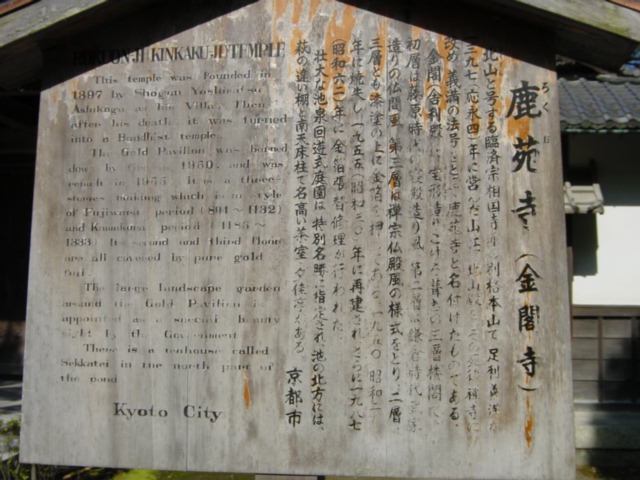 ROKUON-JI KINKAKU-JI TEMPLE
This temple was founded in
1397 by Shogun Yoshimitsu
Ashikaga as his Villa. Then
after his death it was turned
into a Buddhist temple.
The Gold Pavilion was burned
down by 1950, and was
in 1955. It is a three-
stories building which is in style
of Fujiwara period (894~1182)
and Kamakura period (1185~
1333). It second and third floors
are all covered by pure gold
foil.
The large landscape garden
around the Gold Pavilion is
appointed as a special beauty
by the Government.
There is a teahouse called
Sekkatei in the north part of
the pond
Kyoto City
鹿苑寺(金閣寺)
ろく
北山と号する臨済宗相国寺 足利義満が
一三九七(応永四)年に営んだ山荘
改め、義満の法号 鹿苑寺と名付けたものである。
金閣(舎利殿) 三層楼閣
初層は藤原時代の 第二層は鎌倉時代
造りの仏間風、第三層は禅宗仏殿風の様式をとり、二層
三層とも漆塗の上に金箔を押してある。一九五〇(昭和二
年に焼失し、一九五五(昭和三〇)年に再建され、さらに一九八七
(昭和六二)年に金箔張替修理が行われた。
壮大な池泉回遊式庭園は特別名勝に指定され、池の北方には、
萩の違い棚と南天床柱で名高い茶室 がある。
京都市